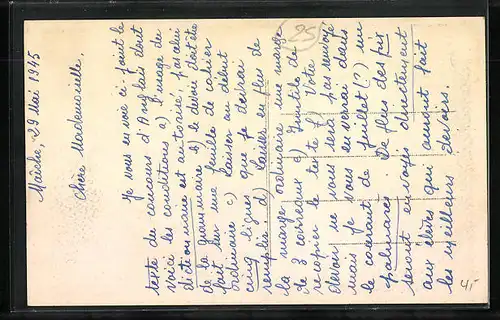 Maîche, 29 Mai 1945
Chère Mademoiselle.
Je vous envoie ci-joint le
texte du concours d'Anglais dont
voici les conditions a) l'usage du
dictionnaire est autorisé, pas celui
de la grammaire b) le devoir doit être
fait sur une feuille de cahier
ordinaire c) laisser au début
cinq lignes que je devrai
remplir d) laisser en plus de
la marge ordinaire une marge
de 3 carreaux e) Inutile de
recopier le texte f) Votre
devoir ne vous sera pas renvoyé
mais je vous en verrai dans
le courant de juillet (?) un
palmarès. De plus des prix
seront envoyés directement
aux élèves qui auront fait
les meilleurs devoirs.
25
4,-